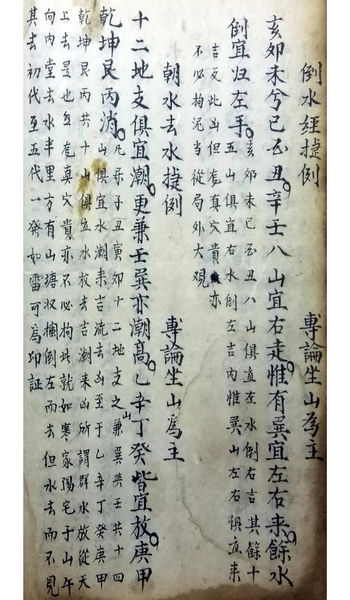 倒水經捷例　專論坐山為主
亥卯未兮巳酉丑辛壬八山宜右走惟有巽宜左右来餘水
倒宜归左手亥卯未巳酉丑八山俱宜左水倒右吉其餘十
五山俱宜右水倒左吉内惟巽山左右俱宜来
吉反此凶但龙真穴貴亦
不必拘泥当從局外大覌
朝水去水捷例　專論坐山為主
十二地支俱宜潮更兼壬巽亦潮高乙辛丁癸皆宜放庚甲
乾坤艮丙消凡于子丑寅卯十二地支之山兼巽共壬共十四
山俱宜水潮来吉流去凶至于乙辛丁癸庚甲
乾坤艮丙共十山俱宜水放去吉潮来凶所謂群水放從天
上去是也至龙真穴貴亦不必拘此就如寒家陽宅子山午
向内堂去水半里方有山塘収攔倒左而去但水去而不見
其去初代至五代一發如雷可為印証